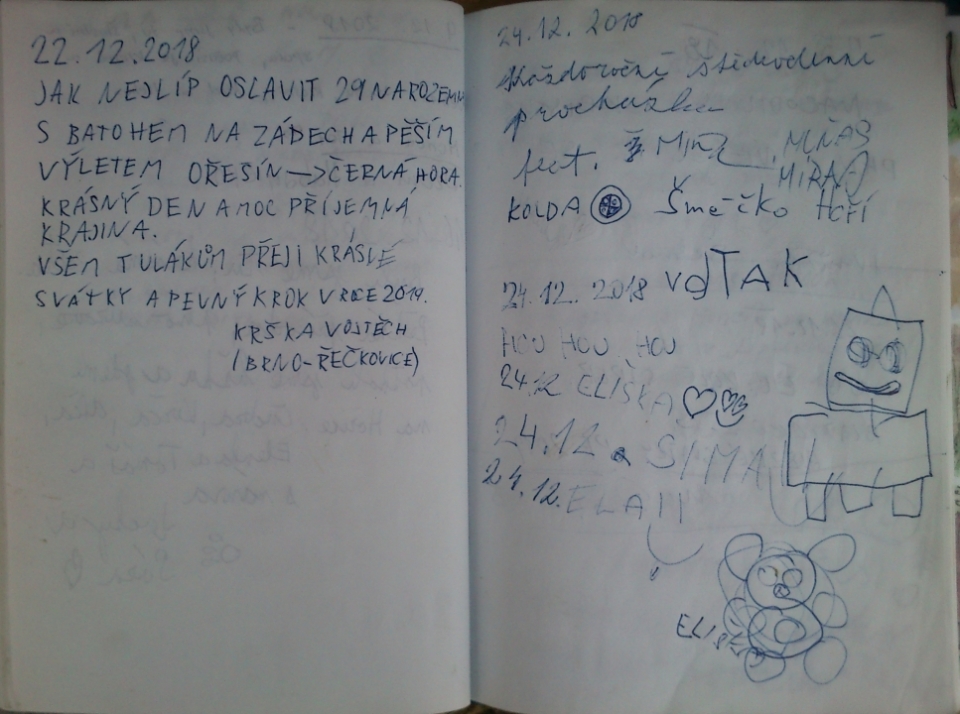 22.12.2018
JAK NEJLÍP OSLAVIT 29 NAROZENINY
S BATOHEM NA ZÁDECH A PĚŠÍM
VÝLETEM OŘEŠÍN —> ČERNÁ HORA.
KRÁSNÝ DEN A MOC PŘÍJEMNÁ
KRAJINA.
VŠEM TULÁKŮM PŘEJI KRÁSLÉ
SVÁTKY A PEVNÝ KROK V ROCE 2019.
KRŠKA VOJTĚCH
(BRNO-ŘEČKOVICE)
24.12. 2018
Každoroční štědrodenní
procházka
feat.
MÍRA
KOLDA Šméčko HOŘÍ
24.12. 2018 VOJTAK
HOU HOU HOU
24.12 ELIŠKA
24.12. SIMA
24.12. ELA !!
ELIŠKA